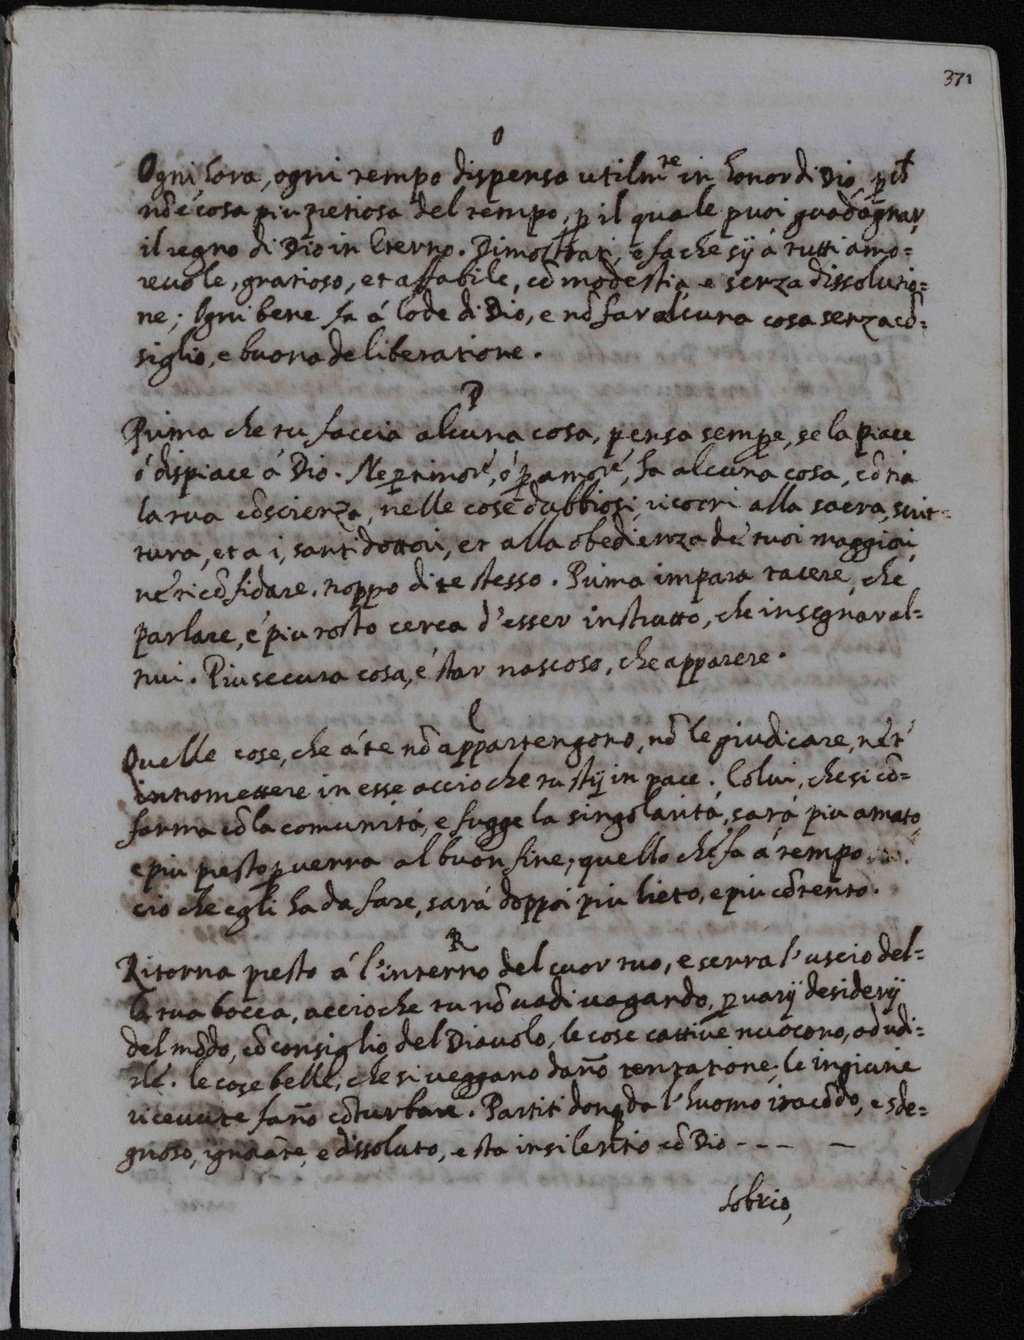 371
O
Ogni hora, ogni tempo dispensa utilmte in honor di Dio, p̱ch̃
nõ é cosa piu pretiosa del tempo, p̱ il quale puoi guadagnar
il regno di Dio in Eterno. Dimostrati, e fa che sij á tutti amo=
revole, gratioso, et affabile, cõ modestia e senza dissolutio=
ne; Ogni bene fa á lode di Dio, e nõ far alcuna cosa senza cõ=
siglio, e buona deliberatione.
P
Prima che tu faccia alcuna cosa, pensa semp̱e, se la piace
ó dispiace á Dio. Ne p̱ timoré, ó p̱ amoré, fa alcuna cosa, cõtra
la tua cõscienza, nelle cose dubbiosi, ricorri alla sacra, scrit=
tura, et a i, santi dottori, et alla obedienza dé tuoi maggiori,
né ti cõfidare, troppo di te stesso. Prima impara tacere, che
parlare, é piu tosto cerca d'esser instrutto, che insegnar al=
trui. Piu secura cosa, é star nascoso, che apparere.
Q
Quelle cose, che á te nõ appartengono, nõ le giudicare, né t'
intromettere in esse accio che tu stij in pace. Colui, che si cõ=
forma cõ la comunitá, e fugge la singolaritá, sará piu amato,
e piu presto p̱verra al buon fine; quello ché fa á tempo
cio che egli ha da fare, sará doppoi piu lieto, e piu cõtento.
R
Ritorna presto á l'interno del cuor tuo, e serra l'uscio del=
la tua bocca, accio che tu nõ vadi vagando, p̱ varij desiderij
del mõdo, cõ consiglio del Diavolo, le cose cattive nuocono, ad udi=
rlé. le cose belle, che si veggano dañо tentatione, le ingiurie
ricevute fañо cõturbare. Partiti donq̱ da l'huomo iracõdo, e sde=
gnoso, ignorãte, e dissoluto, e sta in silentio cõ Dio - - - -
Sobrio,